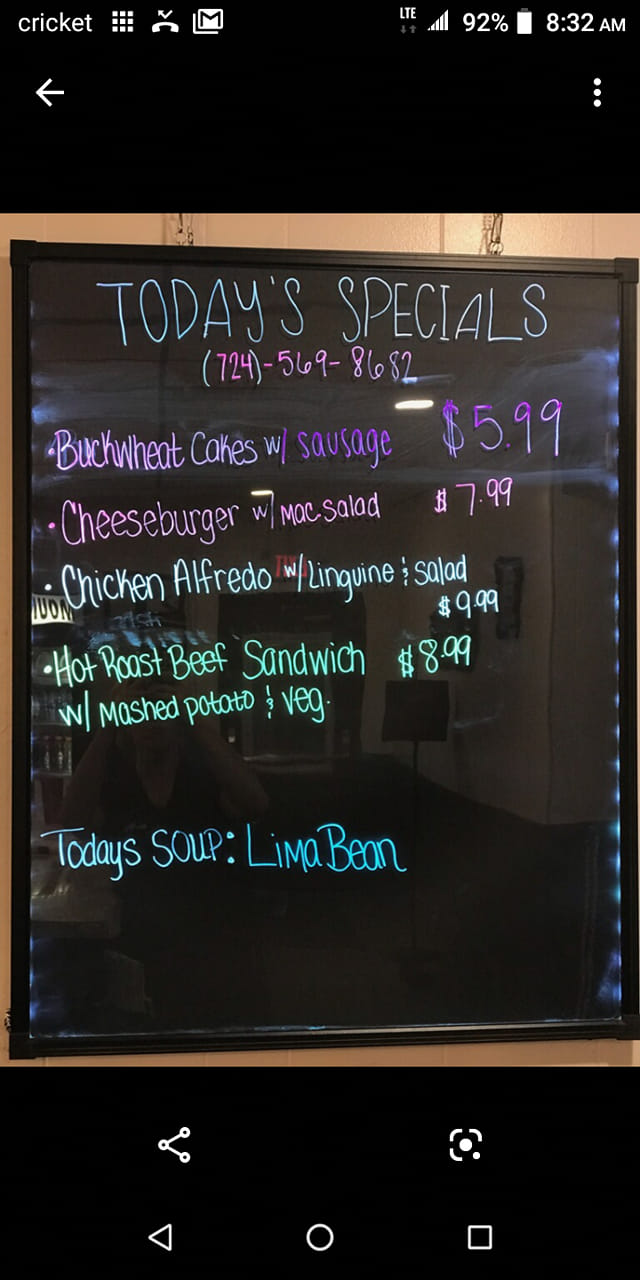 cricket LTE 92% 8:32 AM
TODAY'S SPECIALS
(724)-569-8682
•Buckwheat Cakes w/ sausage $5.99
•Cheeseburger w/ Mac-salad $7.99
•Chicken Alfredo w/ Linguine & salad
$9.99
•Hot Roast Beef Sandwich $8.99
w/ Mashed potato & veg.
Todays Soup: Lima Bean